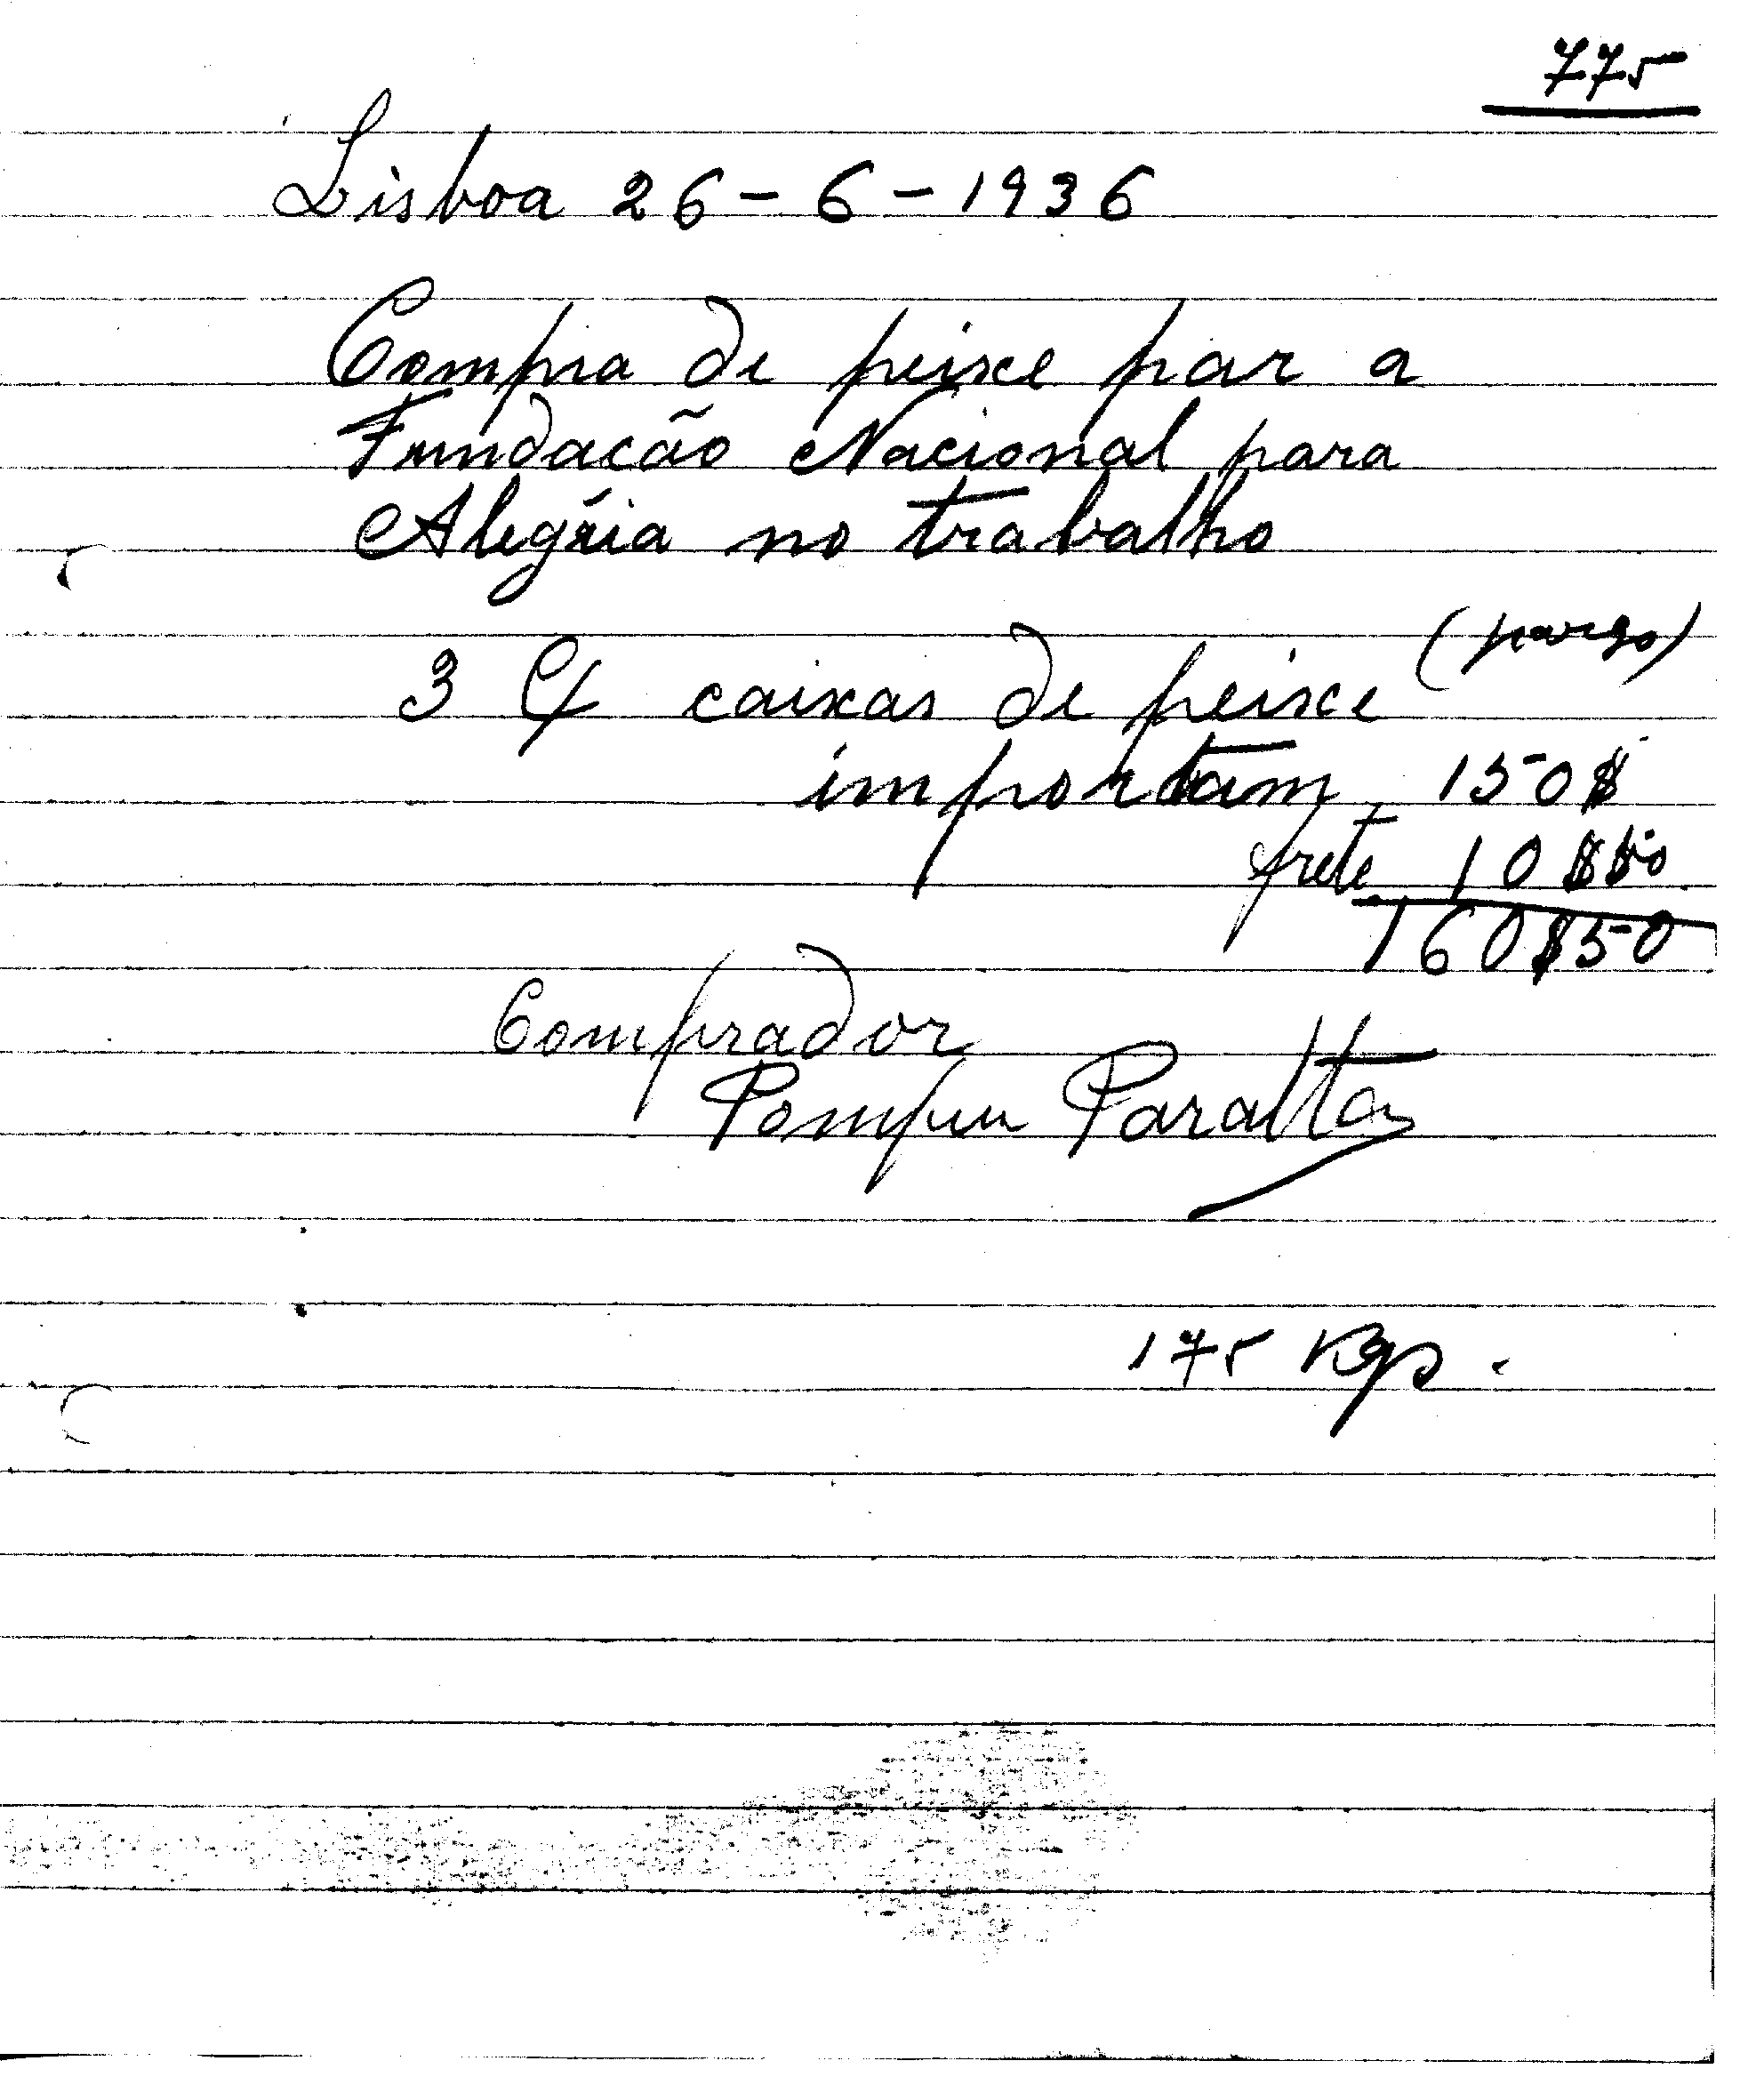 775
Lisboa 26-6-1936
Compra de peixe par a
Fundacão Nacional para
Alegria no trabalho
(pargo)
3 Cx caixas de peixe
importam 150$
frete 10$50
160$50
Comprador
Pompeu Paralta
175 Kgs.